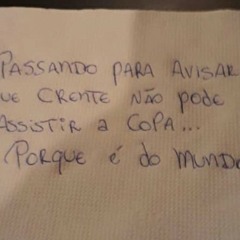 PASSANDO PARA AVISAR
QUE CRENTE NÃO PODE
ASSISTIR a COPA...
PORQUE é do MUNDO